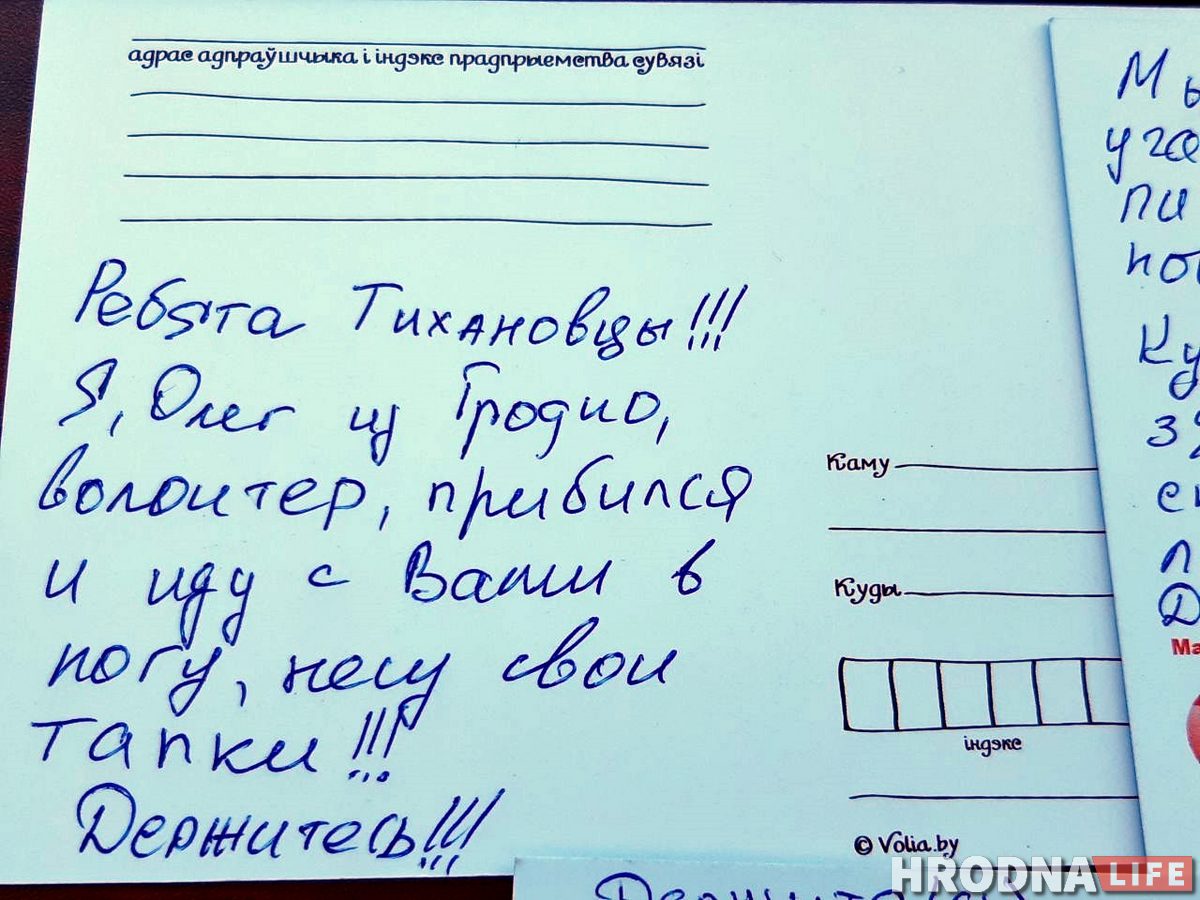 адрас адпраўшчыка і індэкс прадпрыемства сувязі
Ребята Тихановцы!!!
Я, Олег из Гродно,
волонтер, прибился
и иду с Вами в
ногу, несу свои
тапки!!!
Держитесь!!!
Каму
Куды
індэкс
© Volia.by
Мы
HRODNA LIFE